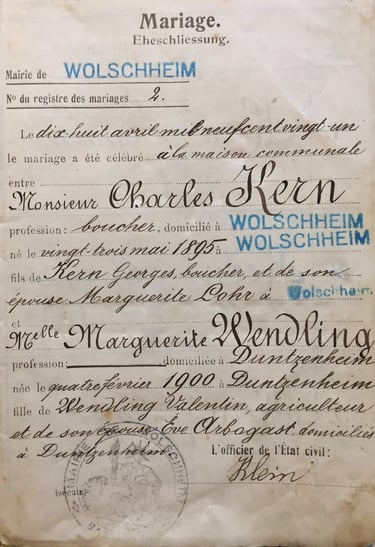 Mariage.
Eheschliessung.
Mairie de WOLSCHHEIM
No du registre des mariages 2.
Le dix huit avril mil neuf cent vingt-un
le mariage a été célébré à la maison communale
entre
Monsieur Charles Kern
profession: boucher, domicilié à WOLSCHHEIM
né le vingt-trois mai 1895 à WOLSCHHEIM
fils de Kern Georges, boucher, et de son
épouse Marguerite Lohr à Wolschheim
et
Melle Marguerite Wendling
profession: domiciliée à Duntzenheim
née le quatre février 1900 à Duntzenheim
fille de Wendling Valentin, agriculteur
et de son épouse Ève Arbogast, domiciliés
à Duntzenheim.
L'officier de l'État civil:
(sceau)
Klein
MAIRIE WOLSCHHEIM